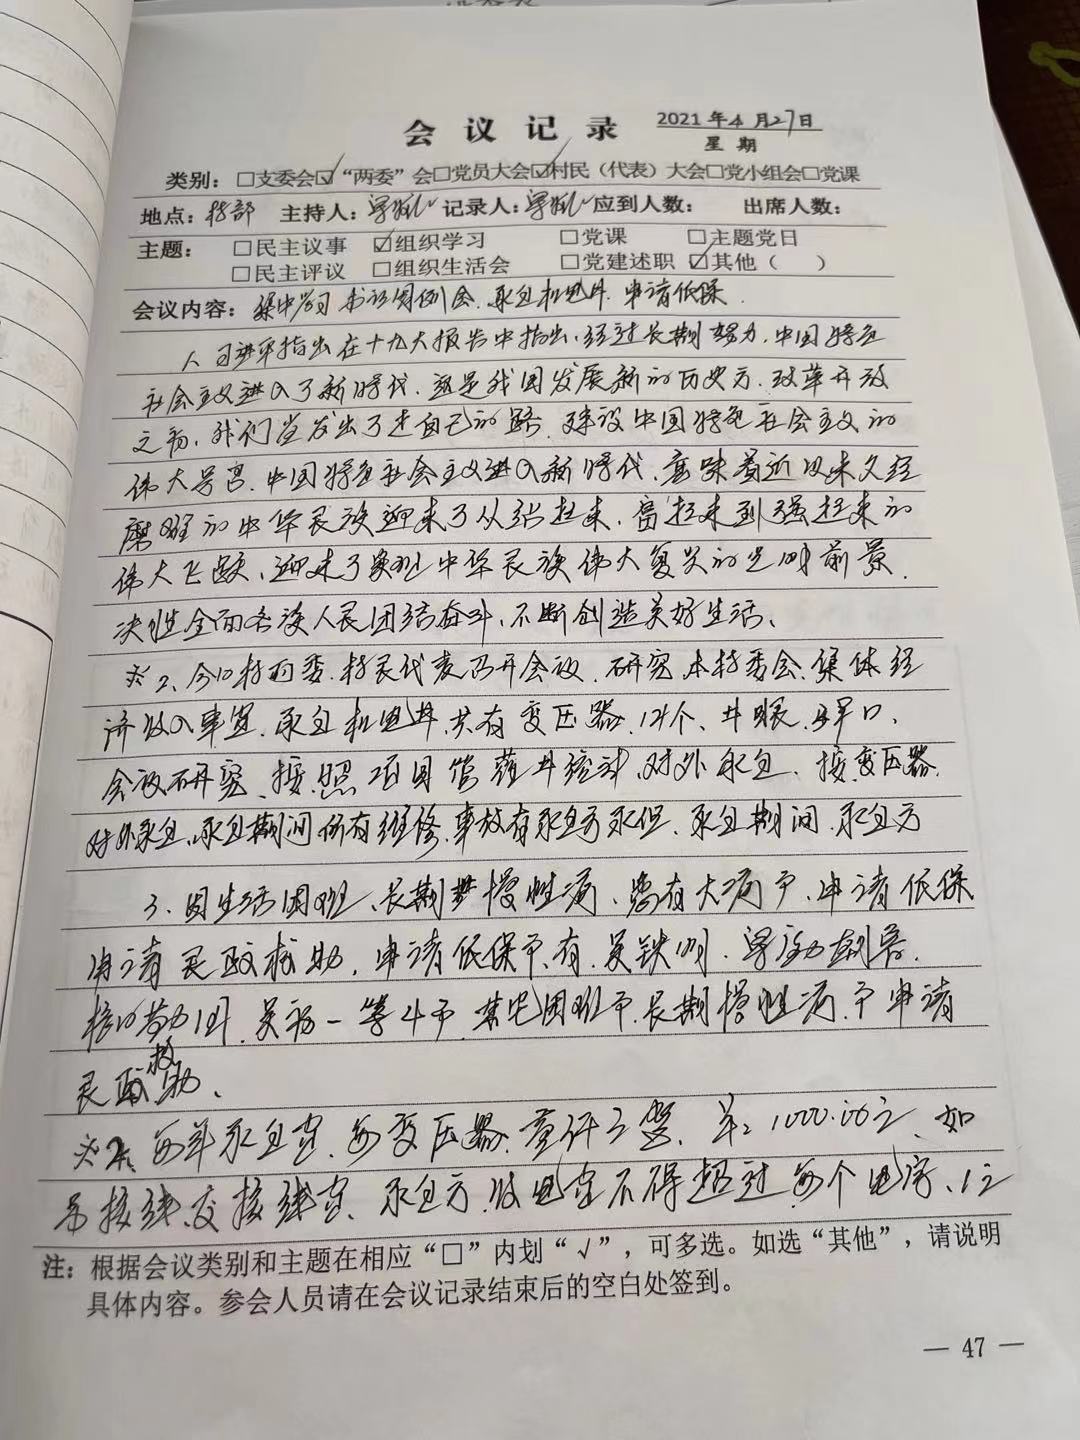 会议记录 2021年4月27日
星期
类别：□支委会☑“两委”会□党员大会☑村民（代表）大会□党小组会□党课
地点：村部 主持人： 记录人： 应到人数： 出席人数：
主题： □民主议事 ☑组织学习 □党课 □主题党日
□民主评议 □组织生活会 □党建述职 ☑其他（ ）
会议内容：集中学习 例会、承包机电井、申请低保
习近平指出在十九大报告中指出、经过长期努力、中国特色
社会主义进入了新时代、这是我国发展新的历史方、改革开放
之初、我们党发出了走自己的路、建设中国特色社会主义的
伟大号召、中国特色社会主义进入新时代、意味着近以来久经
磨难的中华民族迎来了从站起来、富起来到强起来的
伟大飞跃、迎来了实现中华民族伟大复兴的光明前景
决胜全面各族人民团结奋斗、不断创造美好生活、
※2、今日村两委、村民代表召开会议、研究本村委会、集体经
济收入事宜、承包机电井、共有变压器、12个、井眼、
会议研究、按照项目管 对外承包、按变压器
对外承包、承包期间所有维修、事故有承包方承但、承包期间、承包方
3、因生活困难、长期 慢性病、患有大病户、申请低保
申请民政救助、申请低保户、有、吴铁明、
一等4户、其它困难户、长期慢性病、户申请
民政救助、
※2、每年承包定、每变压器、 1000.00元、如
接线、交接线 、承包方、收电 不得超过每个电字、1元
注：根据会议类别和主题在相应“□”内划“√”，可多选。如选“其他”，请说明
具体内容。参会人员请在会议记录结束后的空白处签到。
— 47 —